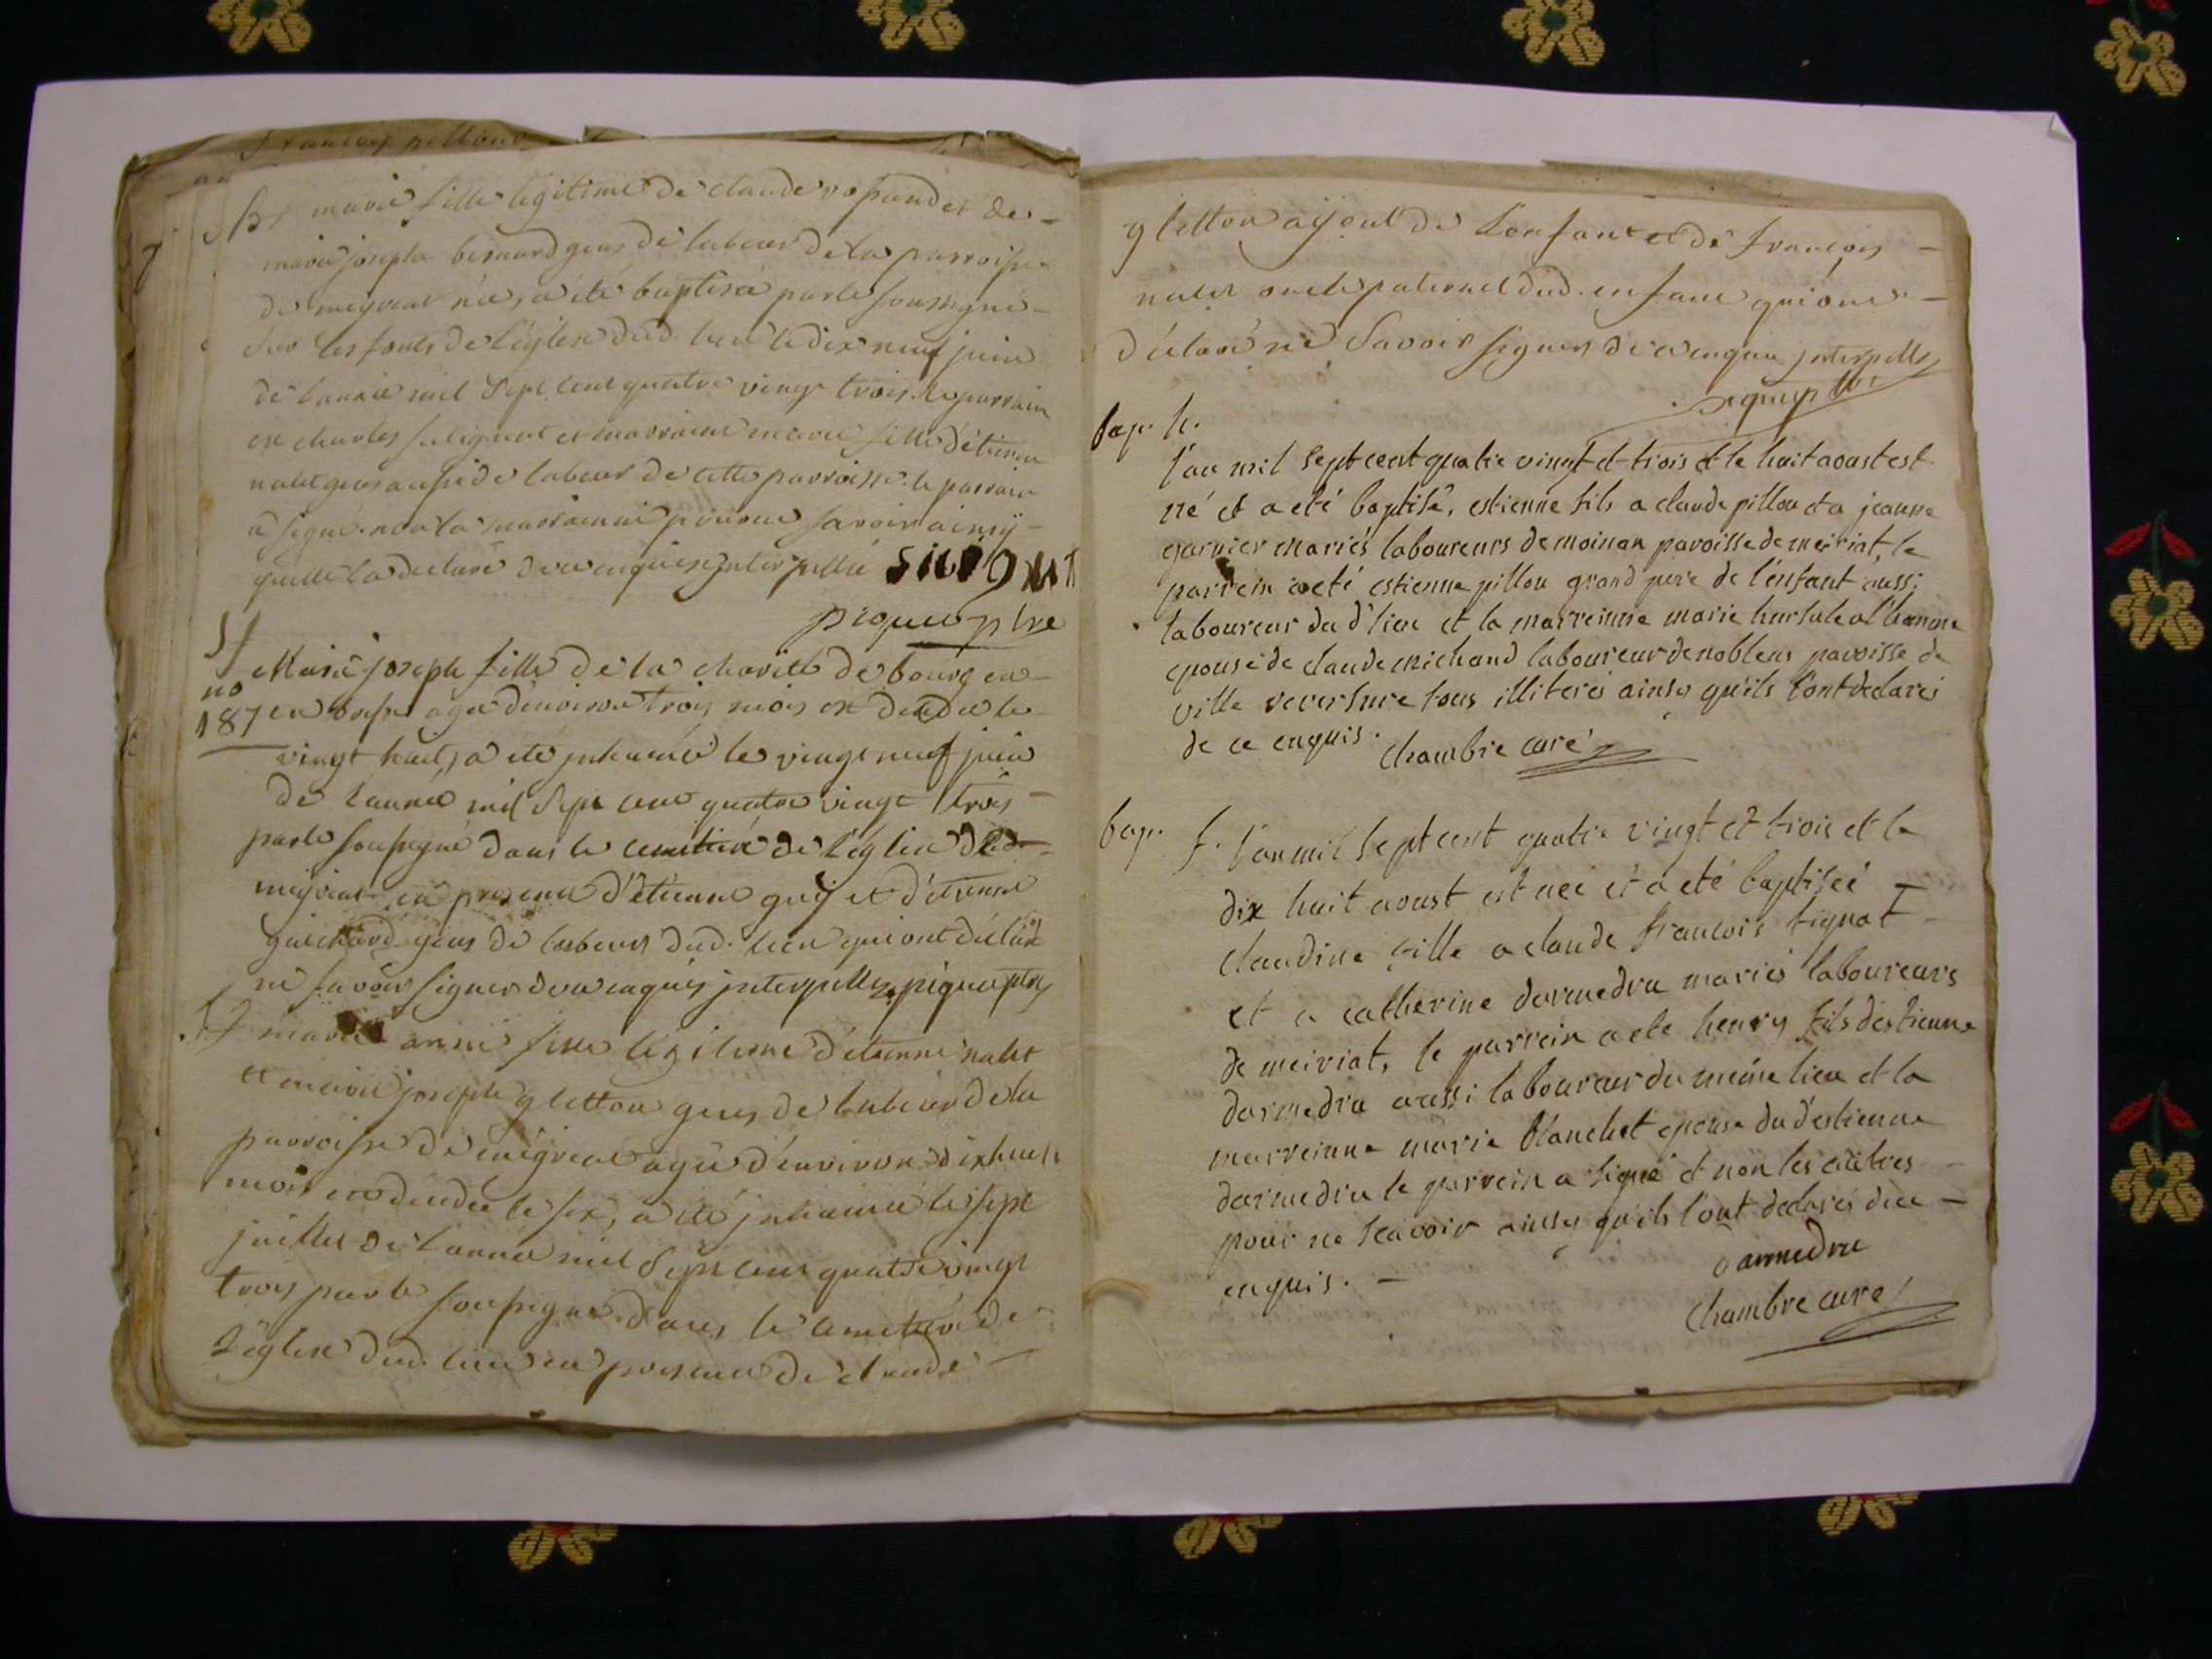 françois pillon
bf marie fille légitime de claude vosfand et de
marie josepte bernard gens de labeur de la parroisse
de meyriat née, a été baptisée par le soussigné
sur les fonts de l'église dud. lieu le dix neuf juin
de l'année mil sept cent quatre vingt trois. le parrain
est charles et marraine marie fille d'étienne
nalet gens aussi de labeur de cette parroisse. le parrain
a signé. non la marraine pour ne savoir ainsÿ
quelle la déclaré de ce enquise interpellée
piquer ptre
Sf
no
187
Marie joseph fille de la charité de bourg en
en bresse agée d'environ trois mois est décédée le
vingt huit, a été inhumée le vingt neuf juin
de l'année mil sept cent quatre vingt trois
par le soussigné dans le cimetière de l'église de
meyriat en presence d'étienne guÿ et d'étienne
guichard gens de labeur dud. lieu qui ont déclaré
ne savoir signer de ce enquis interpellés piquer ptre
Sf marie anne fille légitime d'étienne nalet
et marie josepte gletton gens de labeur de la
parroisse de meyriat agée d'environ dix huit
mois est décédée le six, a été inhumée le sept
juillet de l'année mil sept cent quatre vingt
trois par le soussigné dans le cimetière de
l'église dud. lieu en presence de claude
gletton aÿeul de l'enfant et de françois
nalet oncle paternel dud. enfant qui ont
déclaré ne savoir signer de ce enquis interpellés
piquer ptre
bap. h.
l'an mil sept cent quatre vingt et trois et le huit aoust est
né et a eté baptisé, estienne fils a claude pillon et a jeanne
garnier mariés laboureurs de moinan paroisse de meiriat, le
parrein a eté estienne pillon grand pere de l'enfant aussi
laboureur du d' lieu et la marreinne marie hursule
epouse de claude michaud laboureur de noblens paroisse de
ville reversure tous illiterés ainsy qu'ils l'ont declarés
de ce enquis. Chambre curé
bap. f. l'an mil sept cent quatre vingt et trois et le
dix huit aoust est neé et a eté baptiseé
claudine fille a claude francois tignat
et a catherine darmedru mariés laboureurs
de meiriat, le parrein a ete henry fils d'estienne
darmedru aussi laboureur du même lieu et la
marreinne marie blanchet epouse du d'estienne
darmedru le parrein a signé et non les autres
pour ne scavoir ainsy qu'ils l'ont declarés de ce
enquis.
darmedru
Chambre curé